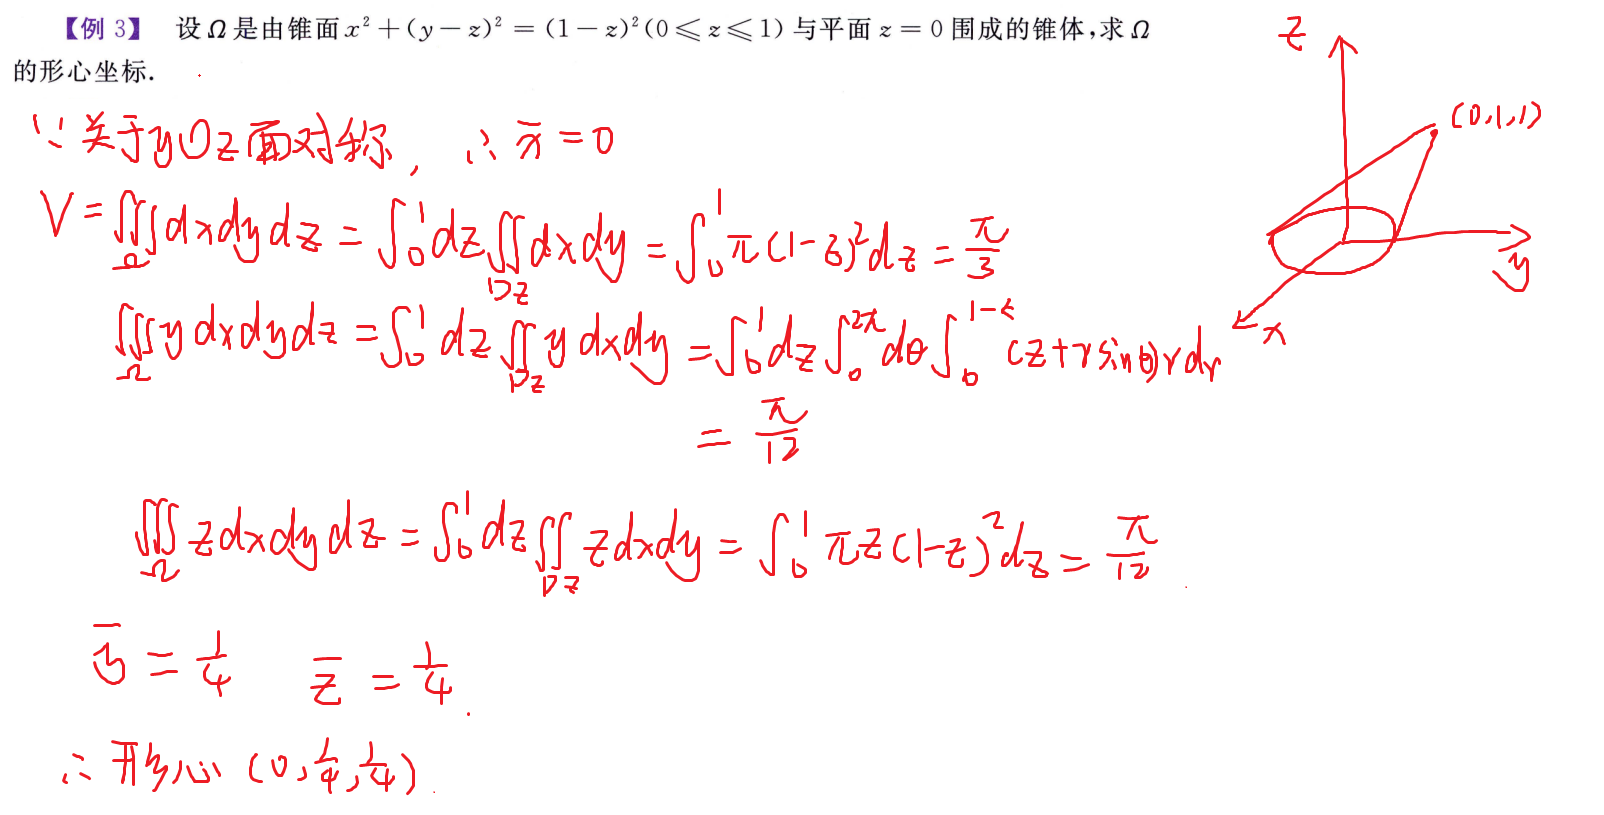 【例 3】 设 Ω 是由锥面 x² + (y − z)² = (1 − z)² (0 ⩽ z ⩽ 1) 与平面 z = 0 围成的锥体,求 Ω
的形心坐标.
∵ 关于yOz面对称, ∴ x̄ = 0
V = ∭_Ω dxdydz = ∫₀¹ dz ∬_Dz dxdy = ∫₀¹ π(1-z)² dz = π/3
∭_Ω y dxdydz = ∫₀¹ dz ∬_Dz y dxdy = ∫₀¹ dz ∫₀^2π dθ ∫₀^1-z (z + r sinθ) r dr
= π/12
∭_Ω z dxdydz = ∫₀¹ dz ∬_Dz z dxdy = ∫₀¹ πz(1-z)² dz = π/12
ȳ = 1/4 z̄ = 1/4.
∴ 形心 (0, 1/4, 1/4).
z
(0,1,1)
y
x